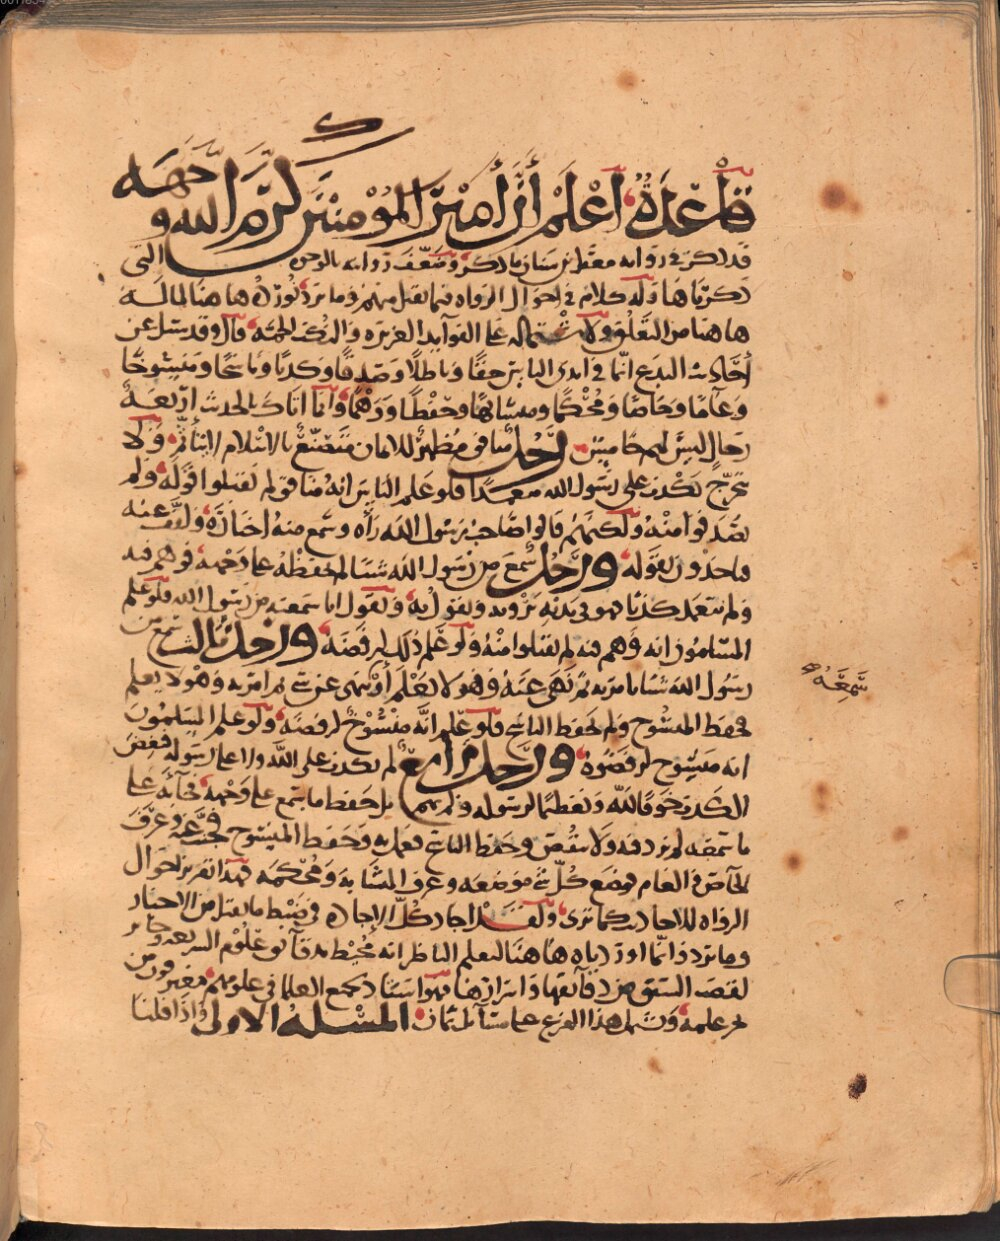 قاعدة اعلم أن أمير المؤمنين كرم الله وجهه
قد ذكر في روايه بالوحي التي
ذكرناها وله كلام في احوال الرواه فيما يقبل منهم وما يرد نورده هاهنا لماله
هاهنا من التعلق ولاشتماله على الفوايد الغزيره والنكت الجمه قال وقد سئل عن
أحاديث البدع انما في ايدي الناس حقا وباطلا وصدقا وكذبا وناسخا ومنسوخا
وعاما وخاصا ومحكما ومتشابها وحفظا ووهما وانما اتاك بالحديث اربعة
رجال ليس لهم خامس رجل منافق مظهر للايمان متصنع بالاسلام لا يتأثم ولا
يتحرج يكذب على رسول الله متعمدا فلو علم الناس انه منافق لم يقبلوا قوله ولم
يصدقوا منه ولكنهم قالوا صاحب رسول الله رآه وسمع منه ولقف عنه
فاخذون بقوله ورجل سمع من رسول الله شيئا لم يحفظه على وجهه فوهم فيه
ولم يتعمد كذبا فهو في يديه يرويه ويقول به ويقول انا سمعته من رسول الله فلو علم
المسلمون انه وهم فيه لم يقبلوا منه ولو علم ذلك لرفضه ورجل ثالث سمع من
رسول الله شيئا يأمر به ثم نهى عنه وهو لا يعلم أو نهى عن شي ثم امر به وهو لا يعلم
فحفظ المنسوخ ولم يحفظ الناسخ فلو علم انه منسوخ لرفضه ولو علم المسلمون
انه منسوخ لرفضوه ورجل رابع لم يكذب على الله ولا على رسوله مبغض
الكذب خوفا لله وتعظيما لرسوله ولم يهم بل حفظ ما سمع على وجهه فجآء به على
ما سمعه لم يزد فيه ولا ينقص وحفظ الناسخ فعمل به وحفظ المنسوخ فجنب عنه وعرف
الخاص والعام فوضع كل شي موضعه وعرف المتشابه ومحكمه فهذا تقرير احوال
الرواه للاحاديث كما ترى ولقد اجاد كل الاجاده في ضبط ما يقبل من الاخبار
وما يرد وانما اوردناه هاهنا ليعلم الناظر انه محيط بدقآئق علوم الشريعه وحائز
لقصب السبق من دقآئقها واسرارها فهو استاذ لجميع العلما في علومهم مغترفون من
بحر علمه ويشتمل هذا الفرع على مسآئل ثمان المسئله الاولى واذا قلنا
سمعه